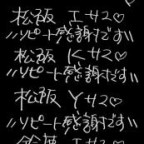 松坂 エサス♡
〃リピート感謝です〃
松坂 Kサス♡
〃リピート感謝です〃
松坂 Yサス♡
〃リピート感謝です〃